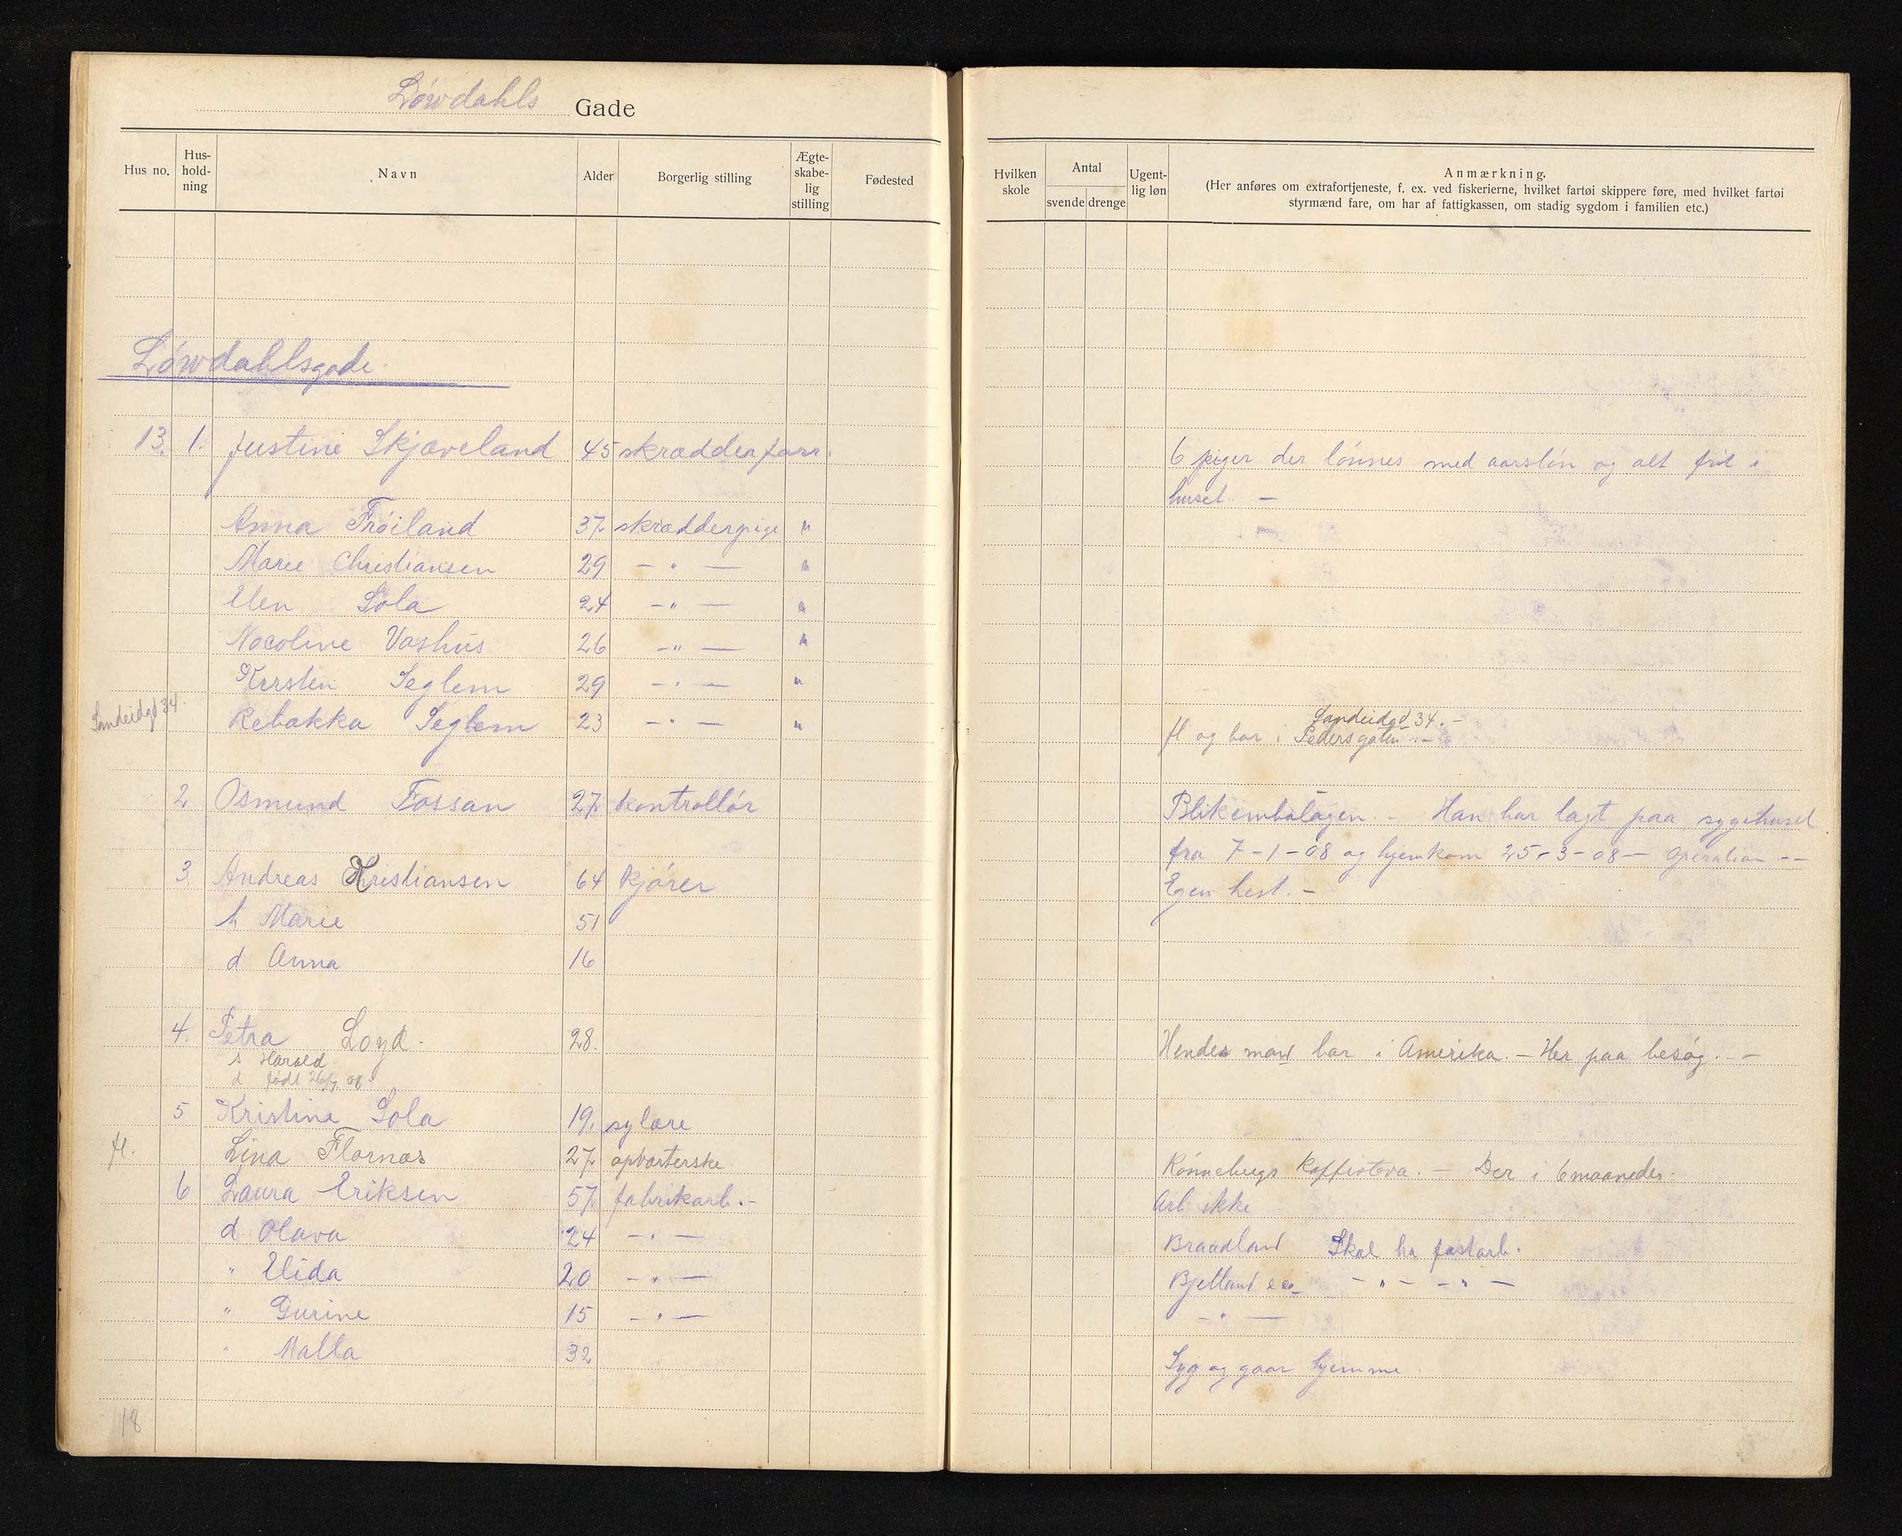 Løwdahls Gade
Hus no. Hus-holdning Navn Alder Borgerlig stilling Ægte-skabe-lig stilling Fødested
Hvilken skole Antal svende drenge Ugent-lig løn Anmærkning.
(Her anføres om extrafortjeneste, f. ex. ved fiskerierne, hvilket fartøi skippere føre, med hvilket fartøi
styrmænd fare, om har af fattigkassen, om stadig sygdom i familien etc.)
Løwdahlsgade.
13. 1. Justine Skjæveland 45 skrædderforr. 6 piger der lønnes med aarsløn og alt frit i
huset. —
Anna Frøiland 37. skrædderpige "
Marie Christiansen 29 — " — "
Elen Sola 24 — " — "
Nocoline Vashus 26 — " — "
Kirsten Seglem 29 — " — "
Sandeidgd 34. Rebakka Seglem 23 — " — "
Sandeidgd 34. —
fl og bor i Pedersgaten. —
2 Osmund Fossan 27. kontrollør Blikembalagen. — Han har lagt paa sygehuset
fra 7-1-08 og hjemkom 25-3-08 — Operation —
3 Andreas Kristiansen 64 kjører Egen hest. —
h Marie 51
d Anna 16
4. Petra Loyd. 28. Hendes man bor i Amerika. — Her paa besøg. —
s Harald
d født 08
5 Kristine Sola 19. sylære
fl. Lina Flornæs 27. opvarterske Rønnebergs Kaffistova. — Der i 6 maaneder.
6 Laura Eriksen 57. fabrikarb. — Arb ikke
d Olava 24 — " — Braadland Skal ha fastarb.
" Elida 20 — " — Bjelland & co — " — — " —
" Gurine 15 — " — — " —
" Malla 32 Syg og gaar hjemme
18